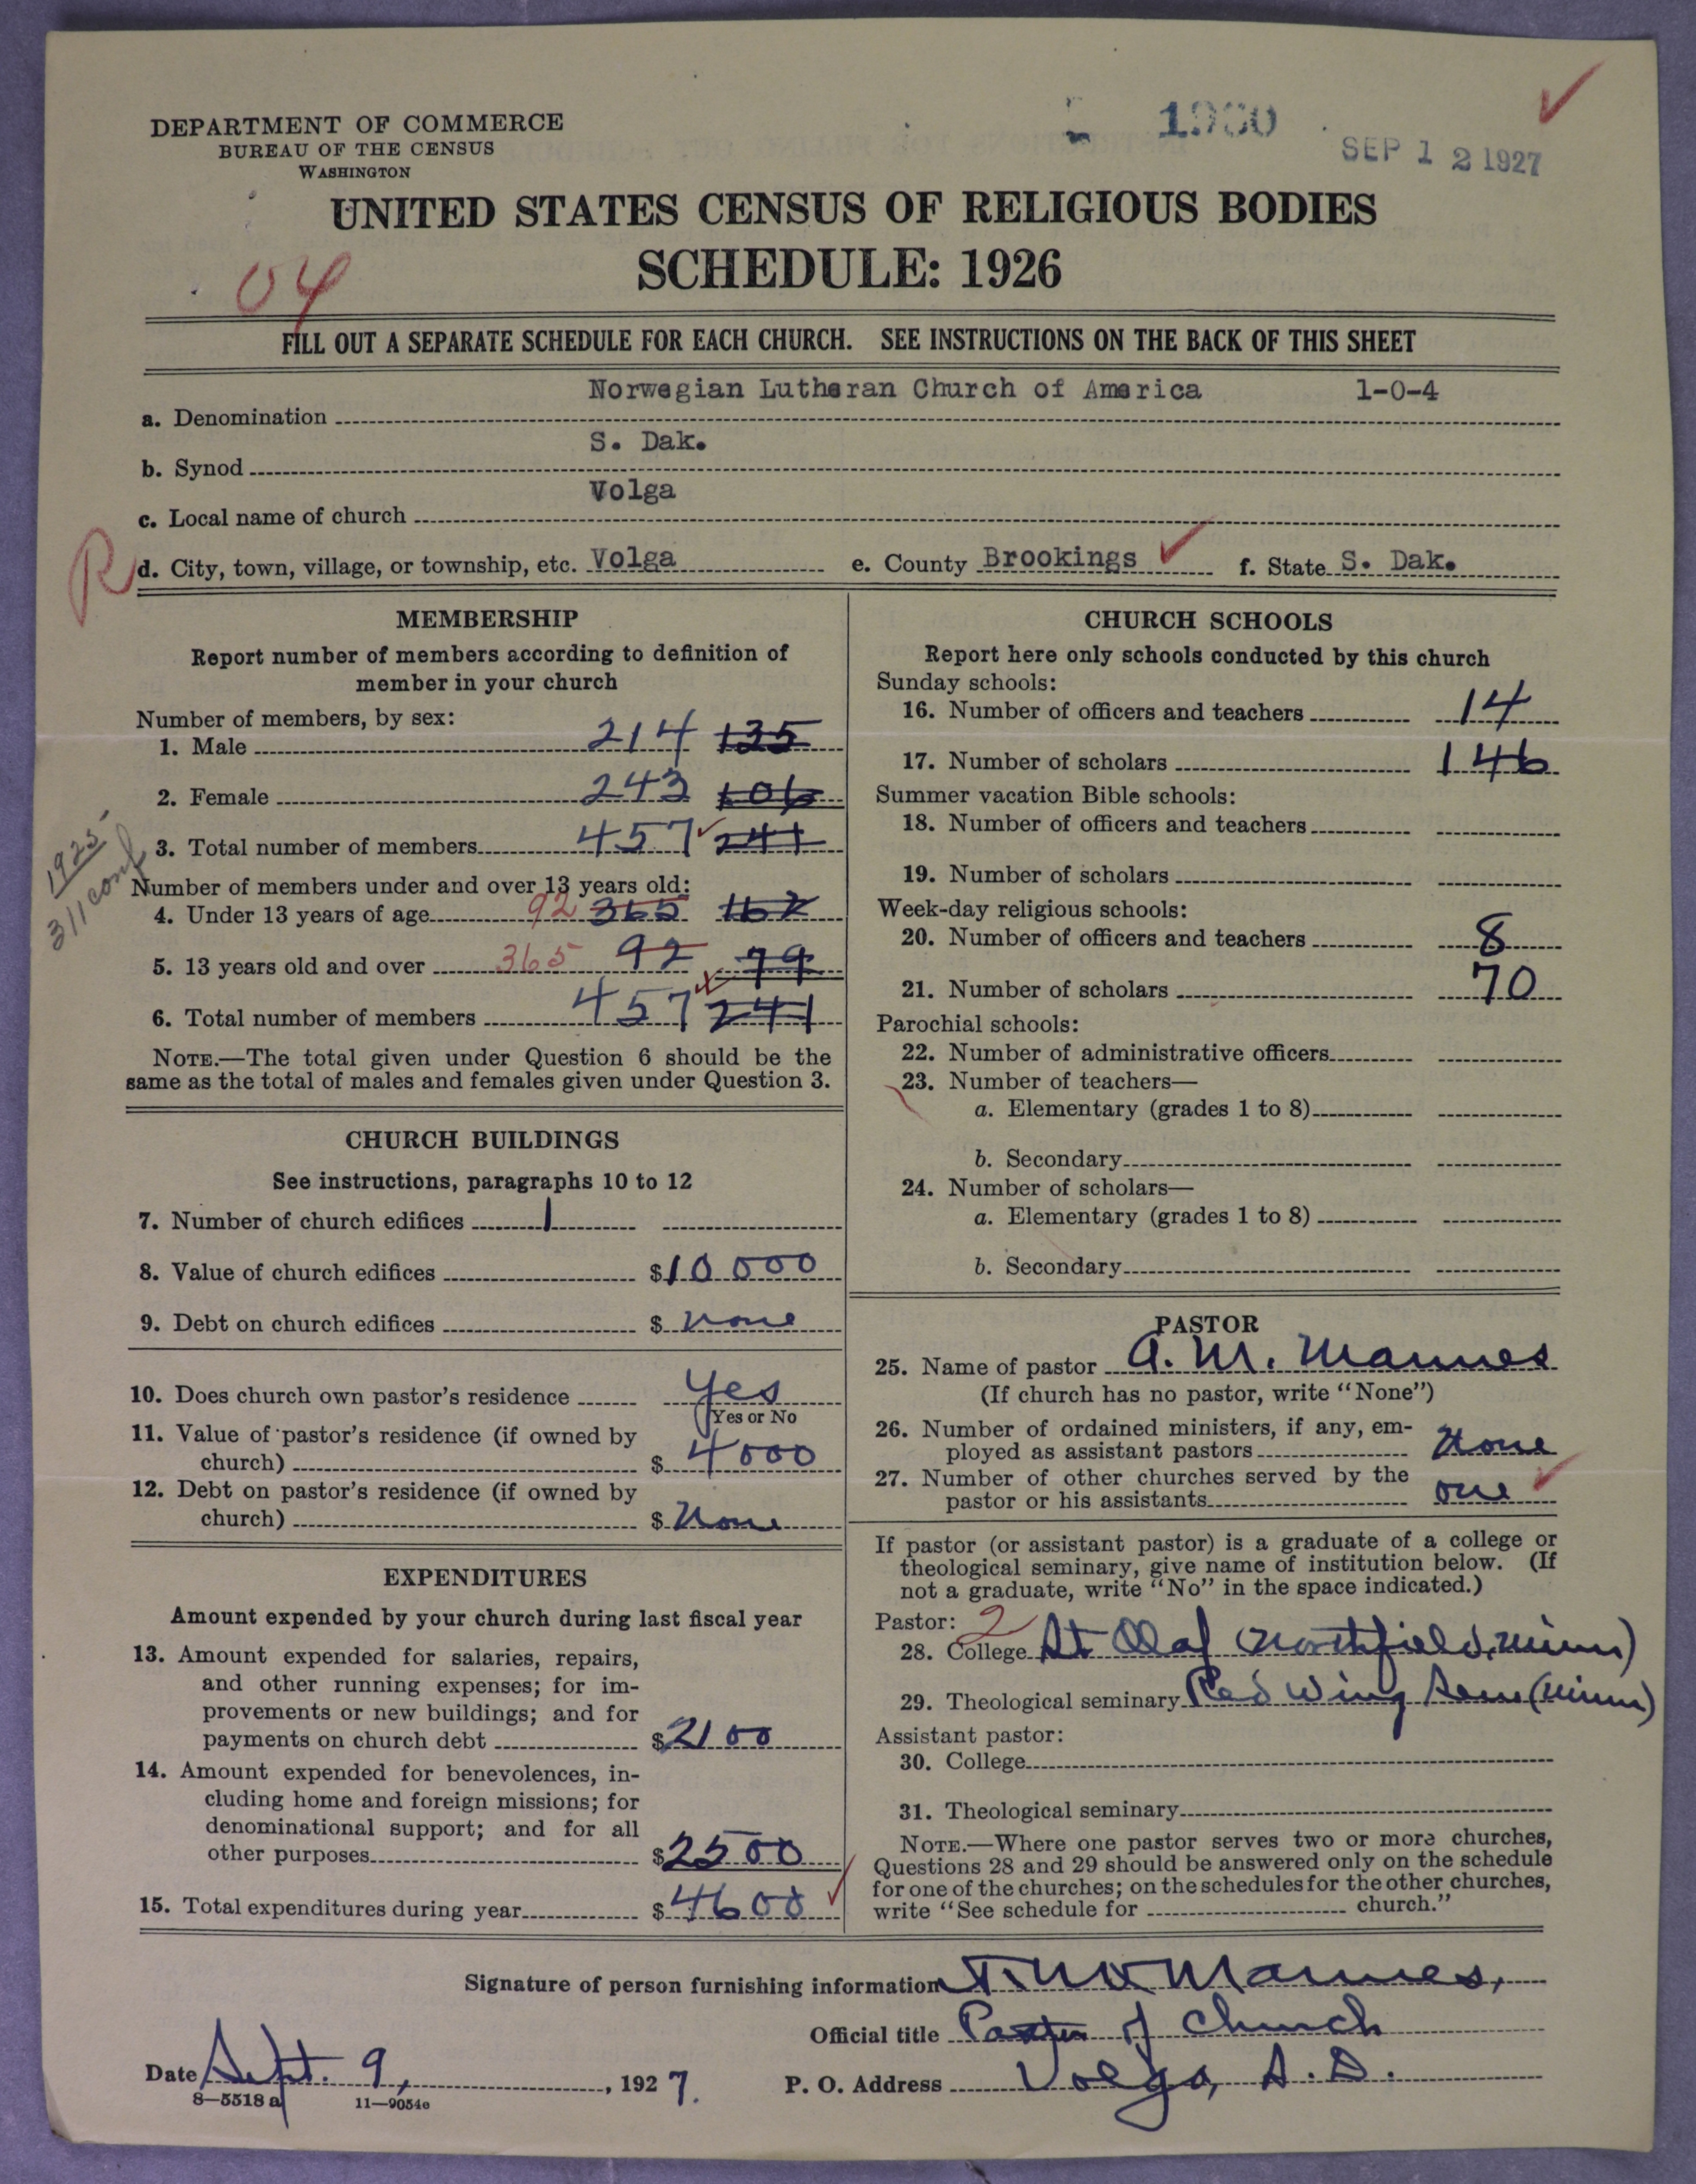 DEPARTMENT OF COMMERCE
BUREAU OF THE CENSUS
WASHINGTON
SEP 12 1927
UNITED STATES CENSUS OF RELIGIOUS BODIES
SCHEDULE: 1926
04
FILL OUT A SEPARATE SCHEDULE FOR EACH CHURCH. SEE INSTRUCTIONS ON THE BACK OF THIS SHEET
Norwegian Lutheran Church of America 1-0-4
a. Denomination
S. Dak.
b. Synod
Volga
c. Local name of church
R d. City, town, village, or township, etc. Volga e. County Brookings f. State S. Dak.
MEMBERSHIP
Report number of members according to definition of
member in your church
Number of members, by sex:
1. Male 214 135
2. Female 243 106
3. Total number of members 457 241
1925
311 conf
Number of members under and over 13 years old:
4. Under 13 years of age 92 365 162
5. 13 years old and over 365 92 79
6. Total number of members 457 241
NOTE.—The total given under Question 6 should be the
same as the total of males and females given under Question 3.
CHURCH BUILDINGS
See instructions, paragraphs 10 to 12
7. Number of church edifices 1
8. Value of church edifices $10000
9. Debt on church edifices $ None
10. Does church own pastor's residence Yes
Yes or No
11. Value of pastor's residence (if owned by
church) $ 4000
12. Debt on pastor's residence (if owned by
church) $ None
EXPENDITURES
Amount expended by your church during last fiscal year
13. Amount expended for salaries, repairs,
and other running expenses; for im-
provements or new buildings; and for
payments on church debt $2100
14. Amount expended for benevolences, in-
cluding home and foreign missions; for
denominational support; and for all
other purposes $2500
15. Total expenditures during year $4600
CHURCH SCHOOLS
Report here only schools conducted by this church
Sunday schools:
16. Number of officers and teachers 14
17. Number of scholars 146
Summer vacation Bible schools:
18. Number of officers and teachers
19. Number of scholars
Week-day religious schools:
20. Number of officers and teachers 8
21. Number of scholars 70
Parochial schools:
22. Number of administrative officers
23. Number of teachers—
a. Elementary (grades 1 to 8)
b. Secondary
24. Number of scholars—
a. Elementary (grades 1 to 8)
b. Secondary
PASTOR
25. Name of pastor A. M. Mannes
(If church has no pastor, write "None")
26. Number of ordained ministers, if any, em-
ployed as assistant pastors None
27. Number of other churches served by the
pastor or his assistants one
If pastor (or assistant pastor) is a graduate of a college or
theological seminary, give name of institution below. (If
not a graduate, write "No" in the space indicated.)
Pastor: 2
28. College St Olaf (Northfield, Minn)
29. Theological seminary Red Wing Sem (Minn)
Assistant pastor:
30. College
31. Theological seminary
NOTE.—Where one pastor serves two or more churches,
Questions 28 and 29 should be answered only on the schedule
for one of the churches; on the schedules for the other churches,
write "See schedule for church."
Signature of person furnishing information Mannes,
Official title Pastor of Church
Date Sept. 9, 1927. P. O. Address Volga, S. D.
8—5518 a 11—9054e